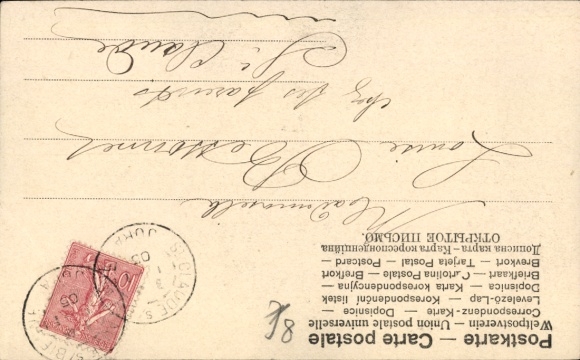 Postkarte — Carte postale
Weltpostverein — Union postale universelle
Correspondenz-Karte — Dopisnice
Levelező-Lap — Korespondenční lístek
Dopisnica — Karta korespondencyjna
Briefkaart — Cartolina Postale — Brefkort
Brevkort — Tarjeta Postal — Postcard
Дописна карта - Карта кореспонденційна
ОТКРЫТОЕ ПИСЬМО.
Mademoiselle
Louise
chez ses parents
St Claude
ST CLAUDE
JURA
05
10
78